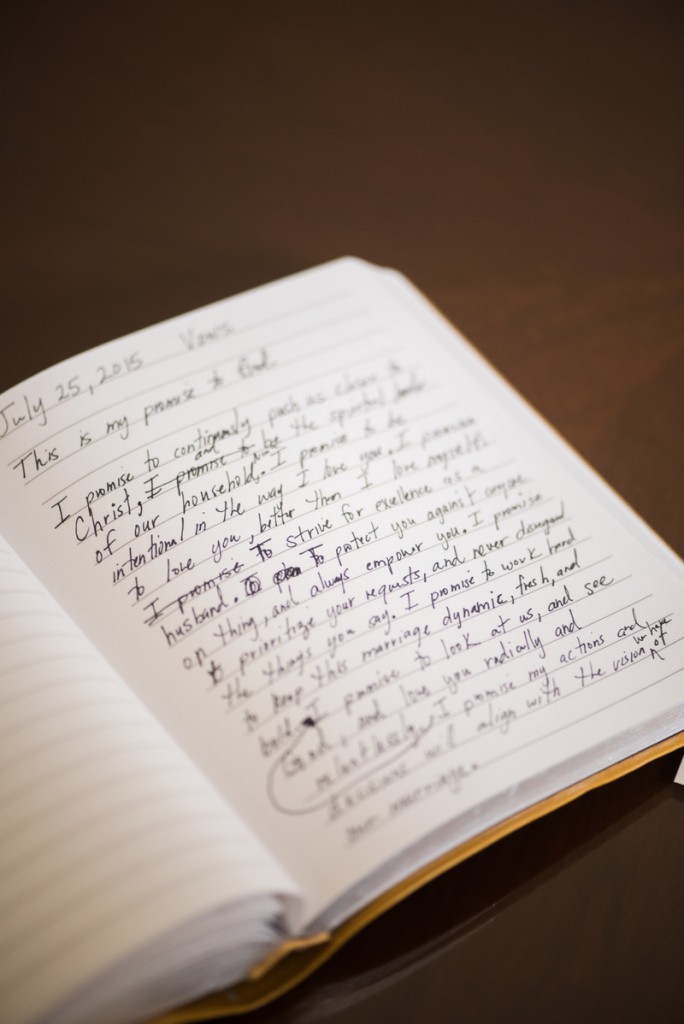 July 25, 2015 Vows
This is my promise to God.
I promise to continuously push us closer to
Christ, I promise to and be the spiritual leader
of our household. I promise to be
intentional in the way I love you. I promise
to love you, better than I love myself.
I promise To strive for excellence as a
husband. To protect you against anyone
or thing, and always empower you. I promise
to prioritize your requests, and never disregard
the things you say. I promise to work hard
to keep this marriage dynamic, fresh, and
bold. I promise to look at us, and see
God, and love you radically and
relentlessly. I promise my actions and
will align with the vision of
our marriage.